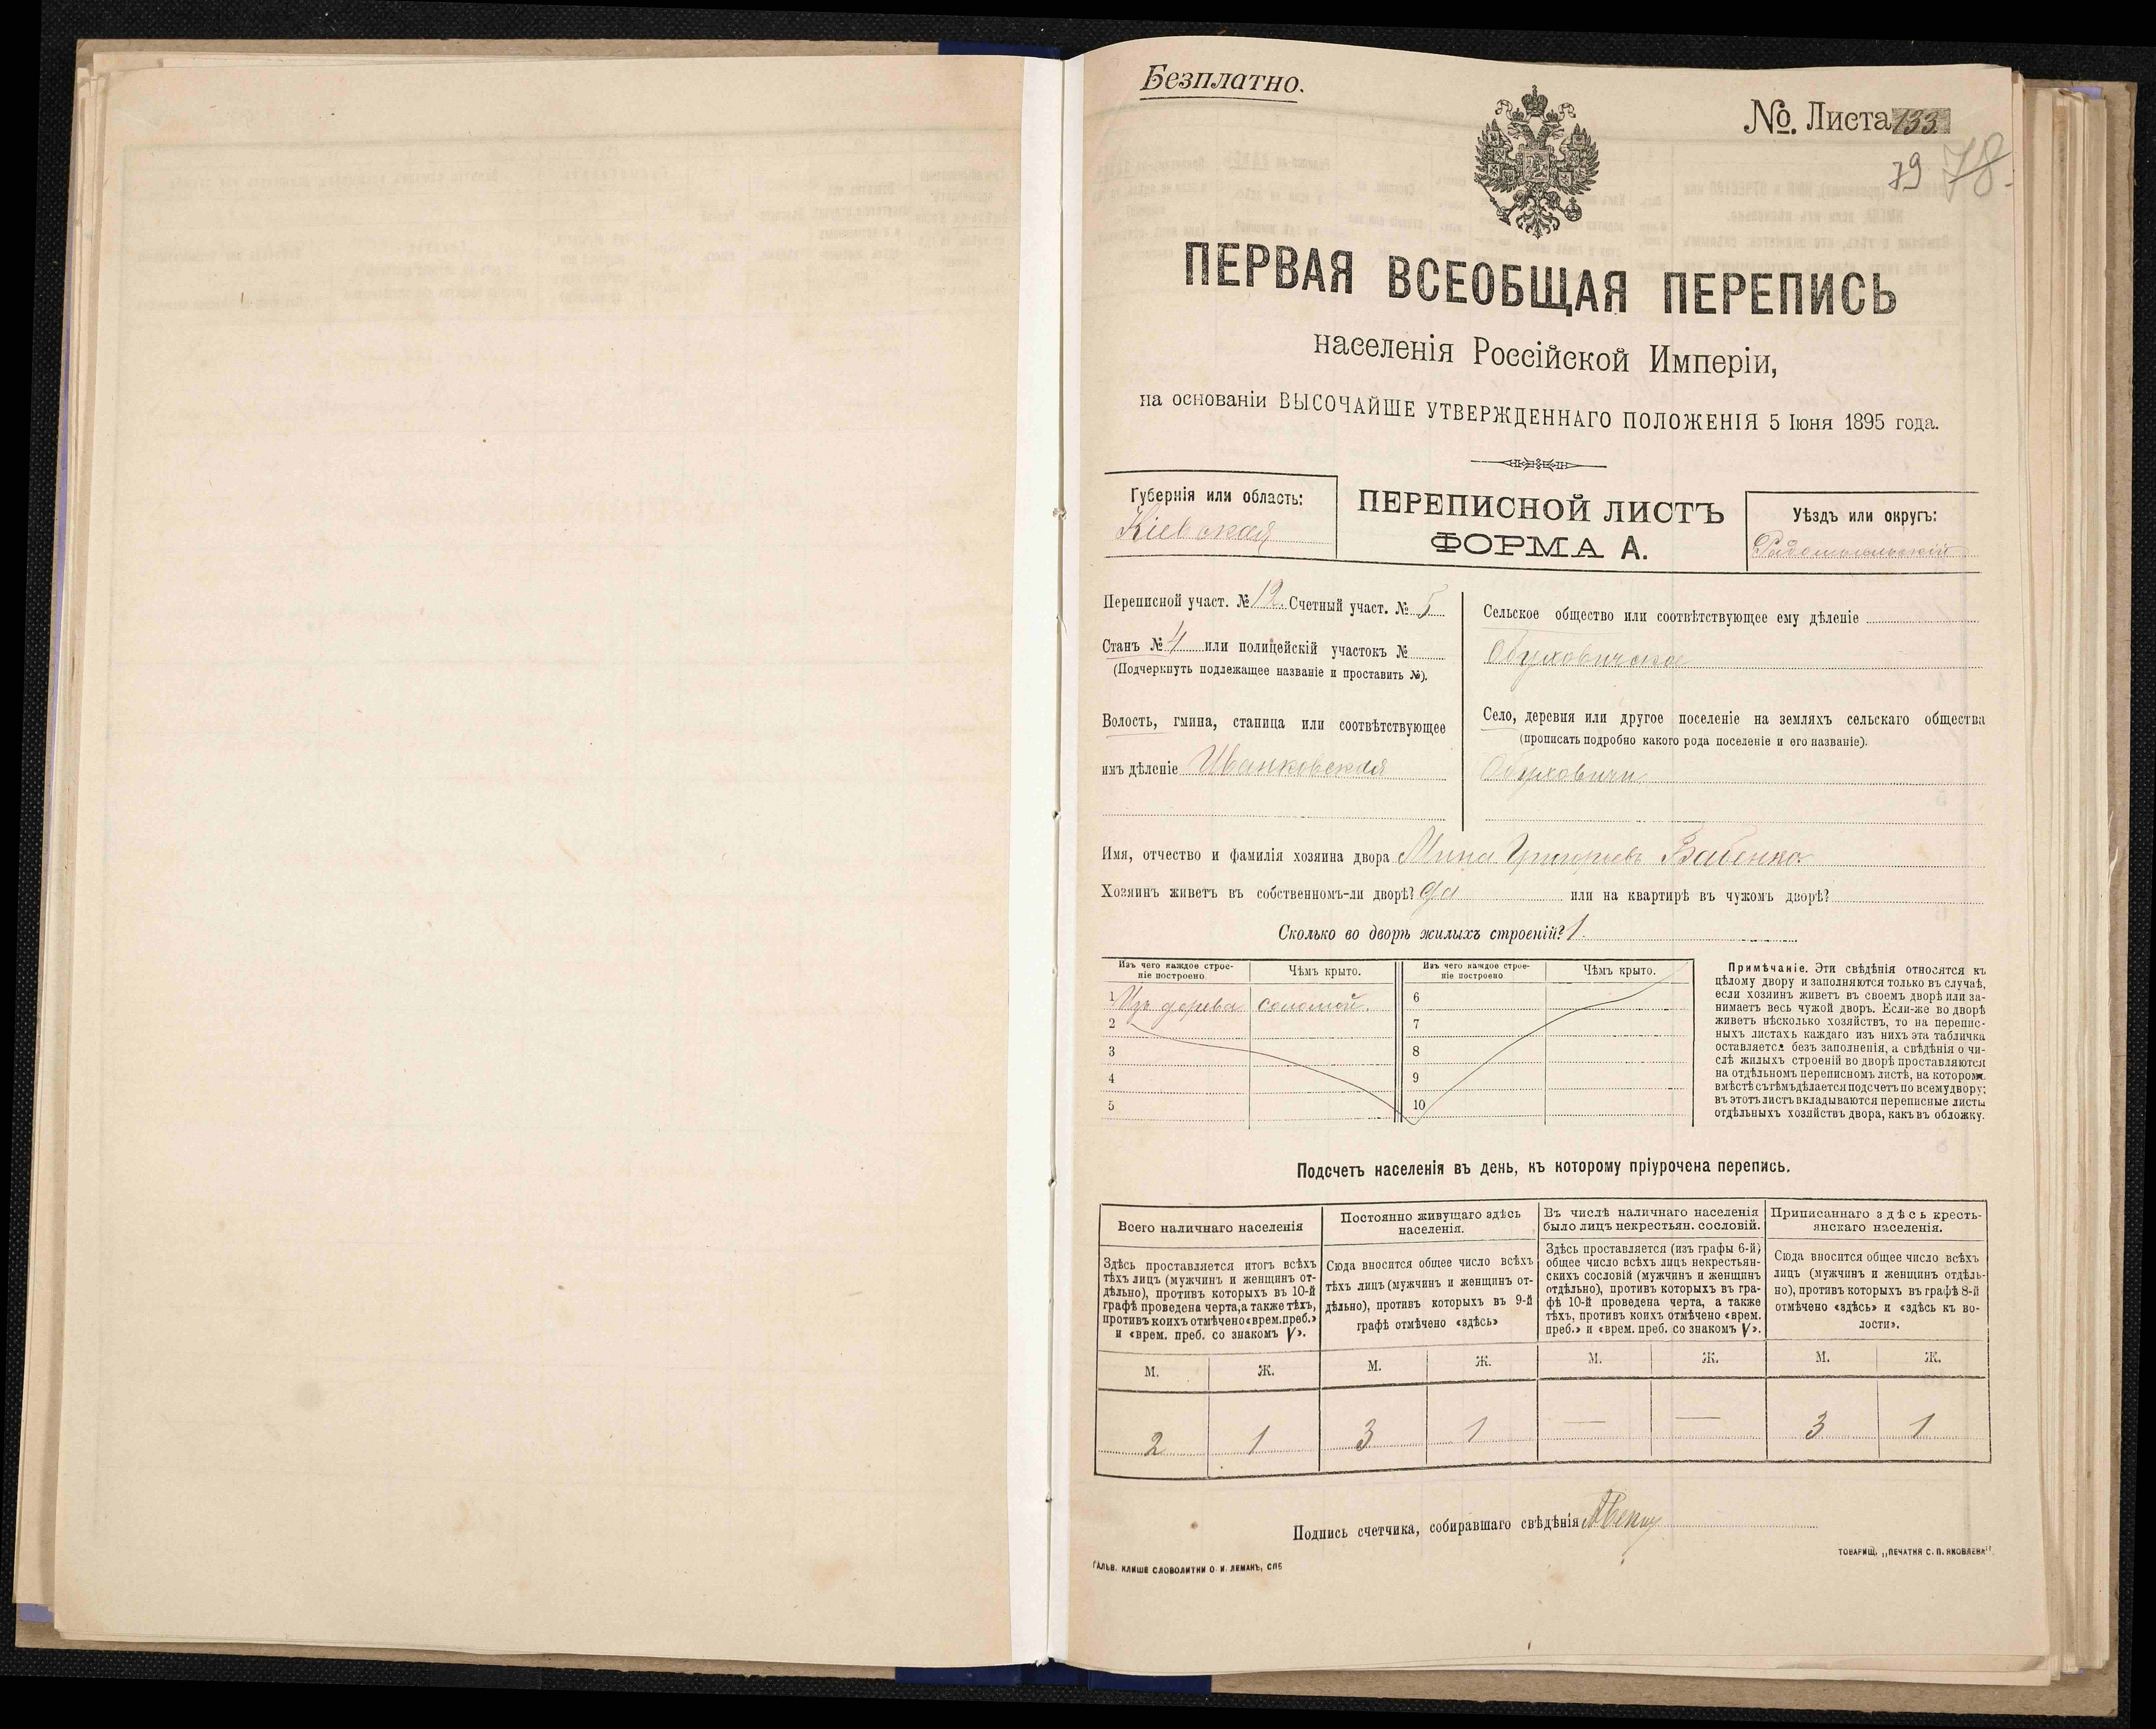 Безплатно.
№. Листа 133
79 78.
ПЕРВАЯ ВСЕОБЩАЯ ПЕРЕПИСЬ
населенія Россійской Имперіи,
на основаніи ВЫСОЧАЙШЕ УТВЕРЖДЕННАГО ПОЛОЖЕНІЯ 5 Іюня 1895 года.
Губернія или область:
Кіевская
ПЕРЕПИСНОЙ ЛИСТЪ
ФОРМА А.
Уѣздъ или округъ:
Радомысльскій
Переписной участ. № 12. Счетный участ. № 5
Станъ № 4 или полицейскій участокъ №
(Подчеркнуть подлежащее названіе и проставить №).
Волость, гмина, станица или соотвѣтствующее
имъ дѣленіе Иванковская
Сельское общество или соотвѣтствующее ему дѣленіе
Обуховичское
Село, деревня или другое поселеніе на земляхъ сельскаго общества
(прописать подробно какого рода поселеніе и его названіе).
Обуховичи
Имя, отчество и фамилія хозяина двора Мина Григорьевъ Бабенко
Хозяинъ живетъ въ собственномъ-ли дворѣ? Да или на квартирѣ въ чужомъ дворѣ?
Сколько во дворѣ жилыхъ строеній? 1.
Изъ чего каждое строе-
ніе построено
Чѣмъ крыто.
Изъ чего каждое строе-
ніе построено
Чѣмъ крыто.
1 Изъ дерева соломой. 6
2 7
3 8
4 9
5 10
Примѣчаніе. Эти свѣдѣнія относятся къ
цѣлому двору и заполняются только въ случаѣ,
если хозяинъ живетъ въ своемъ дворѣ или за-
нимаетъ весь чужой дворъ. Если-же во дворѣ
живетъ нѣсколько хозяйствъ, то на перепис-
ныхъ листахъ каждаго изъ нихъ эта табличка
оставляется безъ заполненія, а свѣдѣнія о чи-
слѣ жилыхъ строеній во дворѣ проставляются
на отдѣльномъ переписномъ листѣ, на которомъ
вмѣстѣ съ тѣмъ дѣлается подсчетъ по всему двору;
въ этотъ листъ вкладываются переписные листы
отдѣльныхъ хозяйствъ двора, какъ въ обложку.
Подсчетъ населенія въ день, къ которому пріурочена перепись.
Всего наличнаго населенія
Здѣсь проставляется итогъ всѣхъ
тѣхъ лицъ (мужчинъ и женщинъ от-
дѣльно), противъ которыхъ въ 10-й
графѣ проведена черта, а также тѣхъ,
противъ коихъ отмѣчено «врем. преб.»
и «врем. преб. со знакомъ V».
Постоянно живущаго здѣсь
населенія.
Сюда вносится общее число всѣхъ
тѣхъ лицъ (мужчинъ и женщинъ от-
дѣльно), противъ которыхъ въ 9-й
графѣ отмѣчено «здѣсь»
Въ числѣ наличнаго населенія
было лицъ некрестьян. сословій.
Здѣсь проставляется (изъ графы 6-й)
общее число всѣхъ лицъ некрестьян-
скихъ сословій (мужчинъ и женщинъ
отдѣльно), противъ которыхъ въ гра-
фѣ 10-й проведена черта, а также
тѣхъ, противъ коихъ отмѣчено «врем.
преб.» и «врем. преб. со знакомъ V».
Приписаннаго здѣсь кресть-
янскаго населенія.
Сюда вносится общее число всѣхъ
лицъ (мужчинъ и женщинъ отдѣль-
но), противъ которыхъ въ графѣ 8-й
отмѣчено «здѣсь» и «здѣсь къ во-
лости».
М. Ж. М. Ж. М. Ж. М. Ж.
2 1 3 1 — — 3 1
Подпись счетчика, собиравшаго свѣдѣнія
ГАЛЬВ. КЛИШЕ СЛОВОЛИТНИ О. И. ЛЕМАНЪ, СПБ
ТОВАРИЩ. „ПЕЧАТНЯ С. П. ЯКОВЛЕВА".